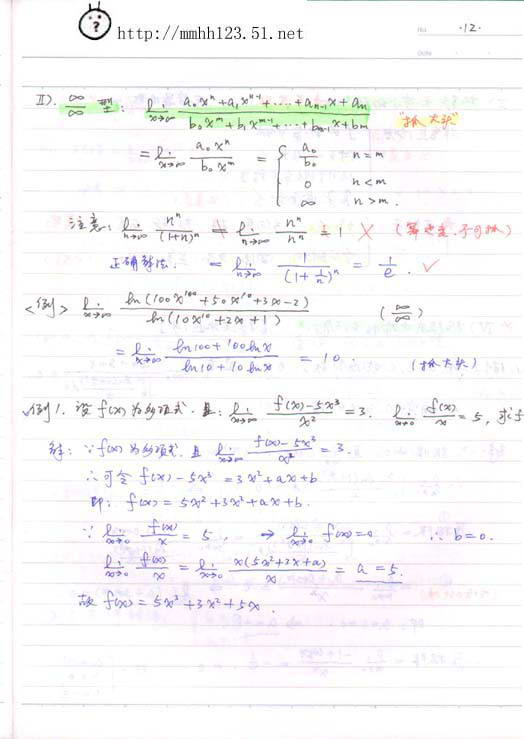 ? http://mmhh123.51.net
No ·12·
Date
II). ∞/∞ 型: lim x→∞ (a₀xⁿ+a₁xⁿ⁻¹+‥‥+aₙ₋₁x+aₙ)/(b₀xᵐ+b₁xᵐ⁻¹+‥‥+bₘ₋₁x+bₘ) "抓大头"
= lim x→∞ a₀xⁿ/b₀xᵐ = { a₀/b₀ n=m
0 n<m
∞ n>m.
注意: lim n→∞ nⁿ/(1+n)ⁿ = lim n→∞ nⁿ/nⁿ = 1 × (幂也是∞,不可抓)
正确解法. = lim n→∞ 1/(1+1/n)ⁿ = 1/e . ✓
<例> lim x→∞ ln(100x¹⁰⁰+50x¹⁰+3x-2)/ln(10x¹⁰+2x+1) (∞/∞)
= lim x→∞ (ln100+100lnx)/(ln10+10lnx) = 10. (抓大头)
√例1. 设f(x)为多项式.且: lim x→∞ (f(x)-5x³)/x² = 3. lim x→0 f(x)/x = 5, 求f
解: ∵f(x)为多项式.且 lim x→∞ (f(x)-5x³)/x² = 3.
∴可令 f(x)-5x³ = 3x²+ax+b
即: f(x) = 5x²+3x²+ax+b.
∵ lim x→0 f(x)/x = 5, ⇒ lim x→0 f(x)=0 ∴ b=0.
lim x→0 f(x)/x = lim x→0 x(5x²+3x+a)/x = a = 5.
故 f(x) = 5x³+3x²+5x.